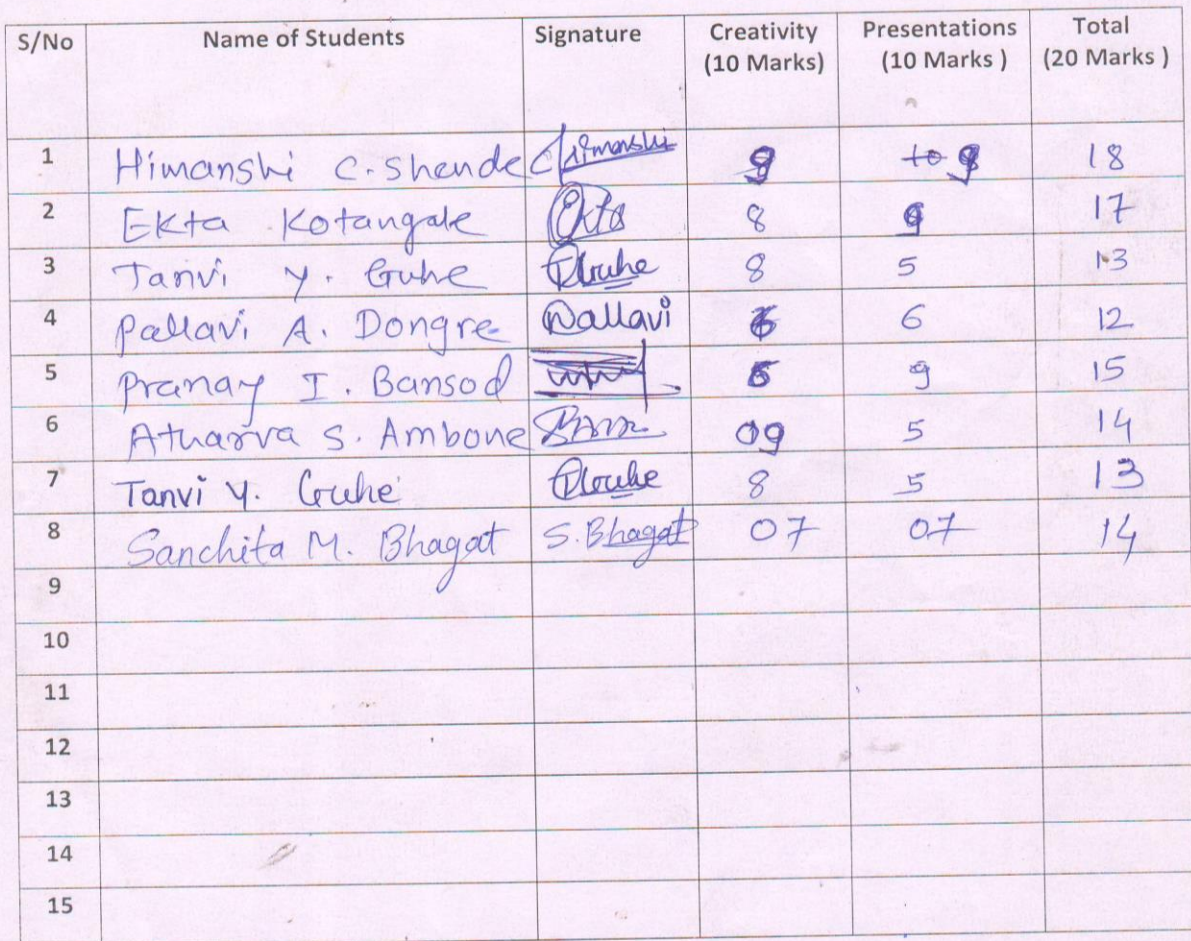 S/No Name of Students Signature Creativity (10 Marks) Presentations (10 Marks ) Total (20 Marks )
1 Himanshi C. Shende Himanshi 9 9 18
2 Ekta Kotangale Ekta 8 9 17
3 Tanvi Y. Guhe TGuhe 8 5 13
4 Pallavi A. Dongre Pallavi 6 6 12
5 Pranay I. Bansod 6 9 15
6 Atharva S. Ambone 09 5 14
7 Tanvi Y. Guhe TGuhe 8 5 13
8 Sanchita M. Bhagat S. Bhagat 07 07 14
9
10
11
12
13
14
15